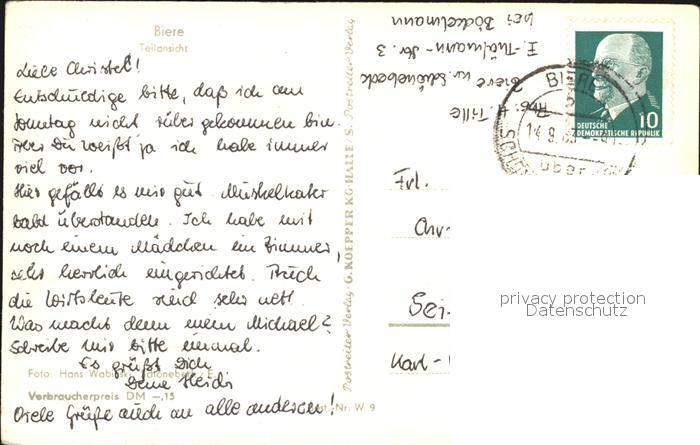 Biere
Teilansicht
Liebe Christel!
Entschuldige bitte, daß ich am
Sonntag nicht rüber gekommen bin.
Aber Du weißt ja ich habe immer
viel vor.
Hier gefällt es mir gut. Muskelkater
bald überstanden. Ich habe mit
noch einem Mädchen ein Zimmer,
sehr herrlich eingerichtet. Auch
die Wirtsleute sind sehr nett.
Was macht denn mein Michael?
Schreibe mir bitte einmal.
Es grüßt Dich
Deine Heidi
Viele Grüße auch an alle anderen!
Foto: Hans Schönebeck / E.
Verbraucherpreis DM -,15
Best.-Nr. W 9
Postreiter-Verlag G. KOEPPER KG·HALLE/S. Postreiter-Verlag
Abs. H. Tille
Biere kr. Schönebeck
E.-Thälmann-Str. 3
bei Böckelmann
BIERE
14.9.65
über
DEUTSCHE
DEMOKRATISCHE REPUBLIK
10
Frl.
Chr
Sei-
Karl-
privacy protection
Datenschutz